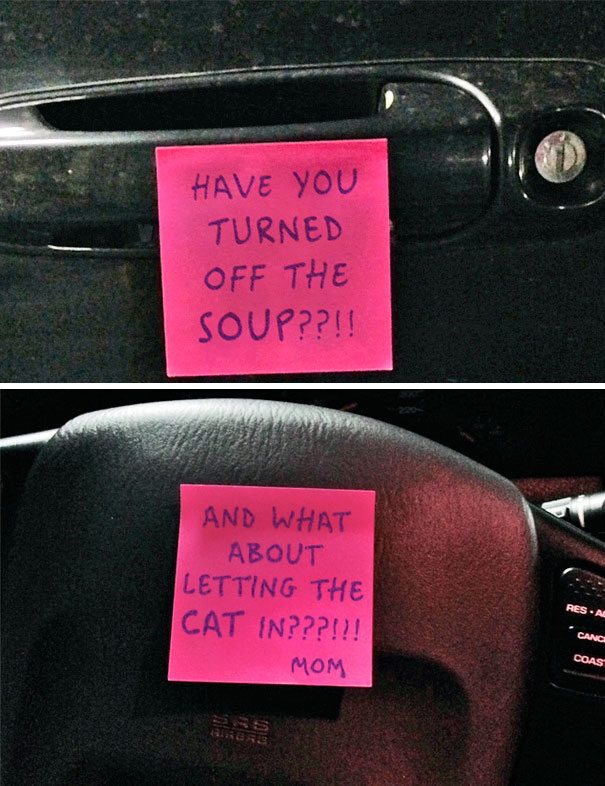 HAVE YOU
TURNED
OFF THE
SOUP??!!
AND WHAT
ABOUT
LETTING THE
CAT IN???!!!
MOM
SRS
AIRBAG
RES
CANC
COAS